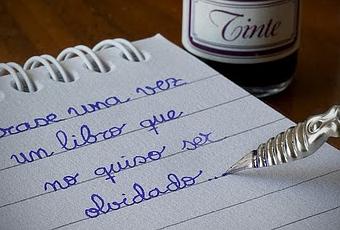 Tinte
Erase una vez
un libro que
no quiso ser
olvidado...